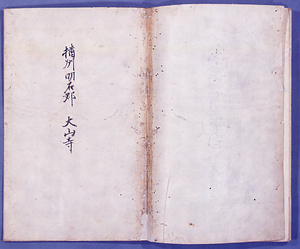 播州明石郡 大山寺